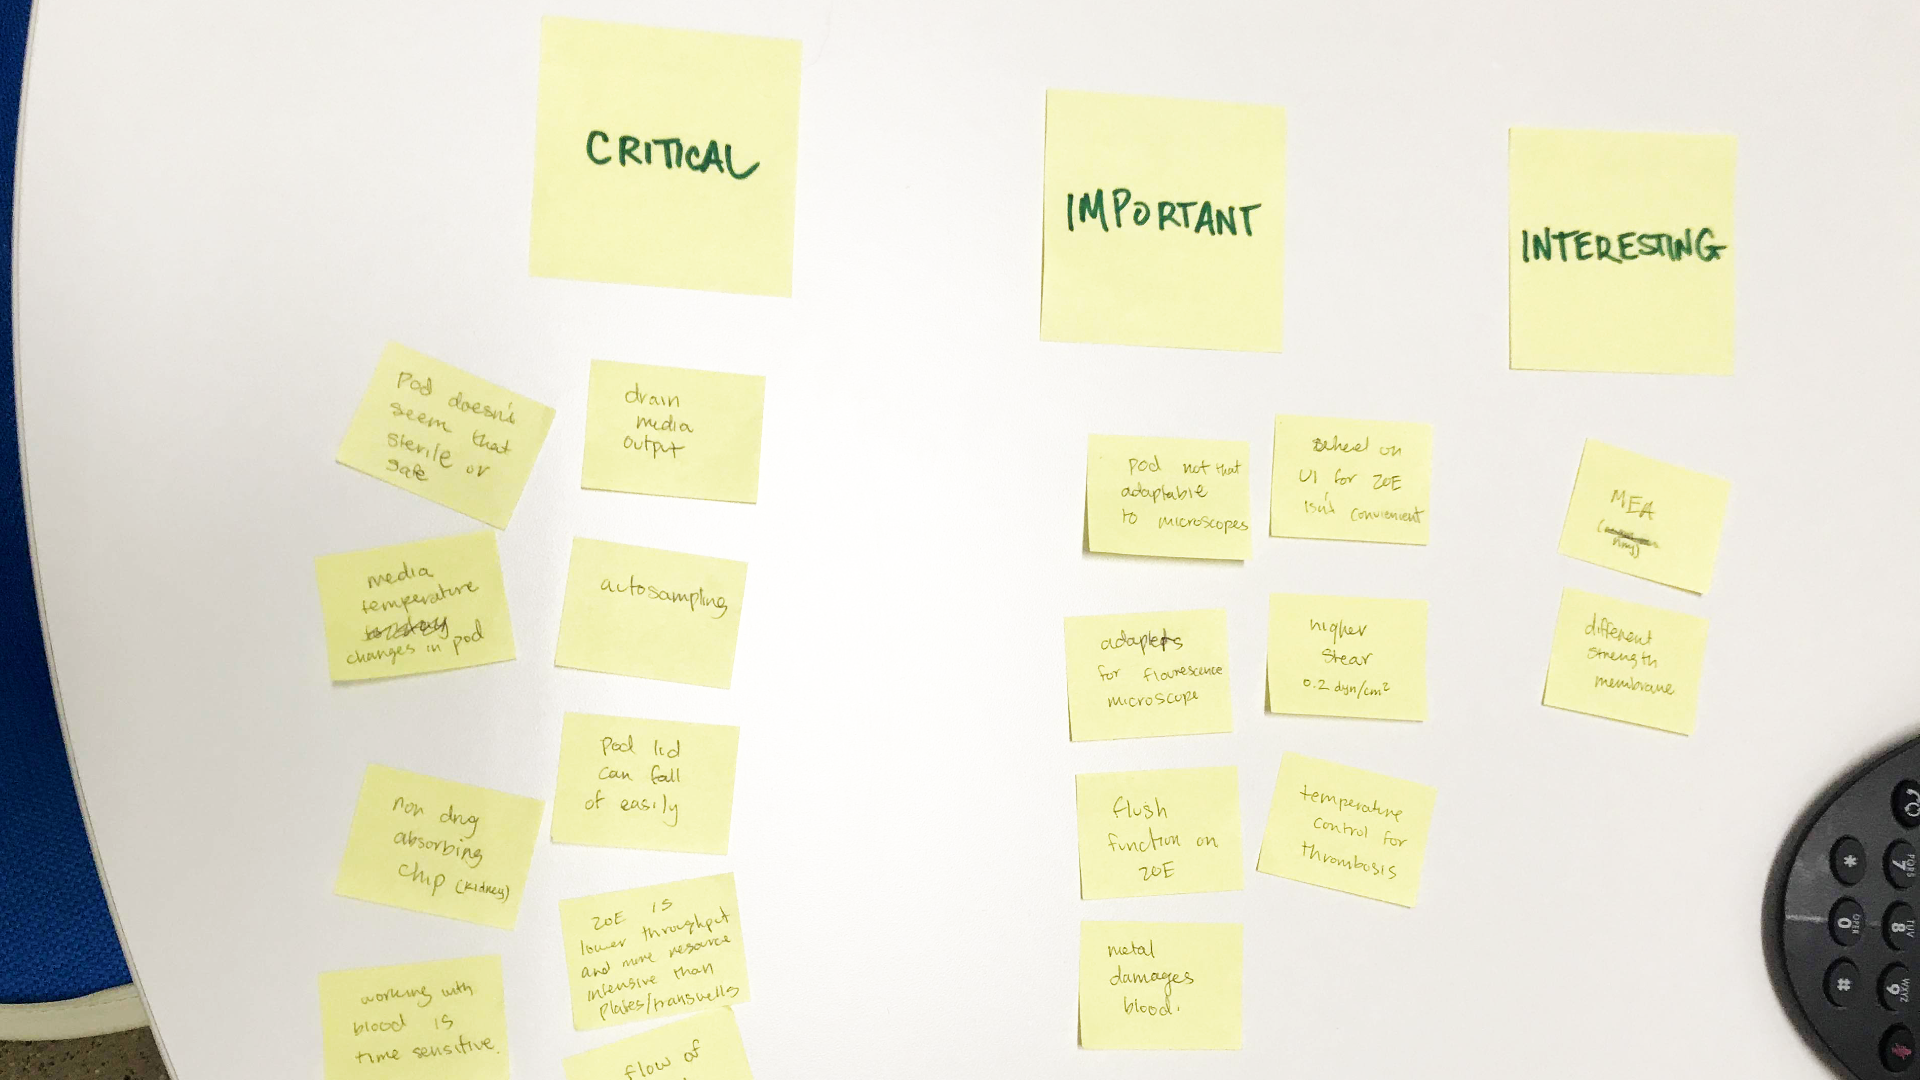 CRITICAL
IMPORTANT
INTERESTING
Pod doesn't
seem that
sterile or
safe
drain
media
output
media
temperature
changes in pod
autosampling
non drug
absorbing
chip (kidney)
pod lid
can fall
of easily
working with
blood is
time sensitive.
ZOE is
lower throughput
and more resource
intensive than
plates/transwells
flow of
pod not that
adaptable
to microscopes
wheel on
UI for ZOE
isn't convienient
adapters
for flourescence
microscope
higher
shear
0.2 dyn/cm²
flush
function on
ZOE
temperature
control for
thrombosis
metal
damages
blood.
MEA
different
strength
membrane
*
7
PQRS
0
OPER
8
TUV
#
9
WXYZ